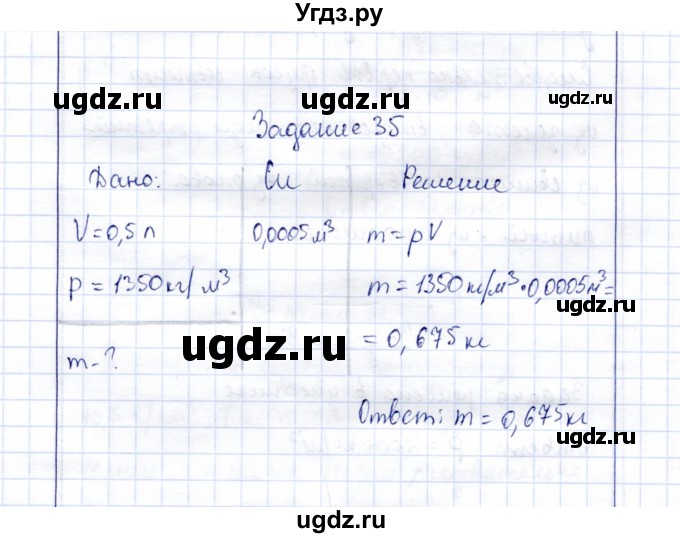 Угдз.ру
ugdz.ru ugdz.ru
Задание 35
Дано: Си Решение
V=0,5 л 0,0005 м³ m=ρV
ρ = 1350 кг/м³ m = 1350 кг/м³ · 0,0005 м³ =
ugdz.ru ugdz.ru
m-? = 0,675 кг
Ответ: m = 0,675 кг
ugdz.ru ugdz.ru
ugdz.ru